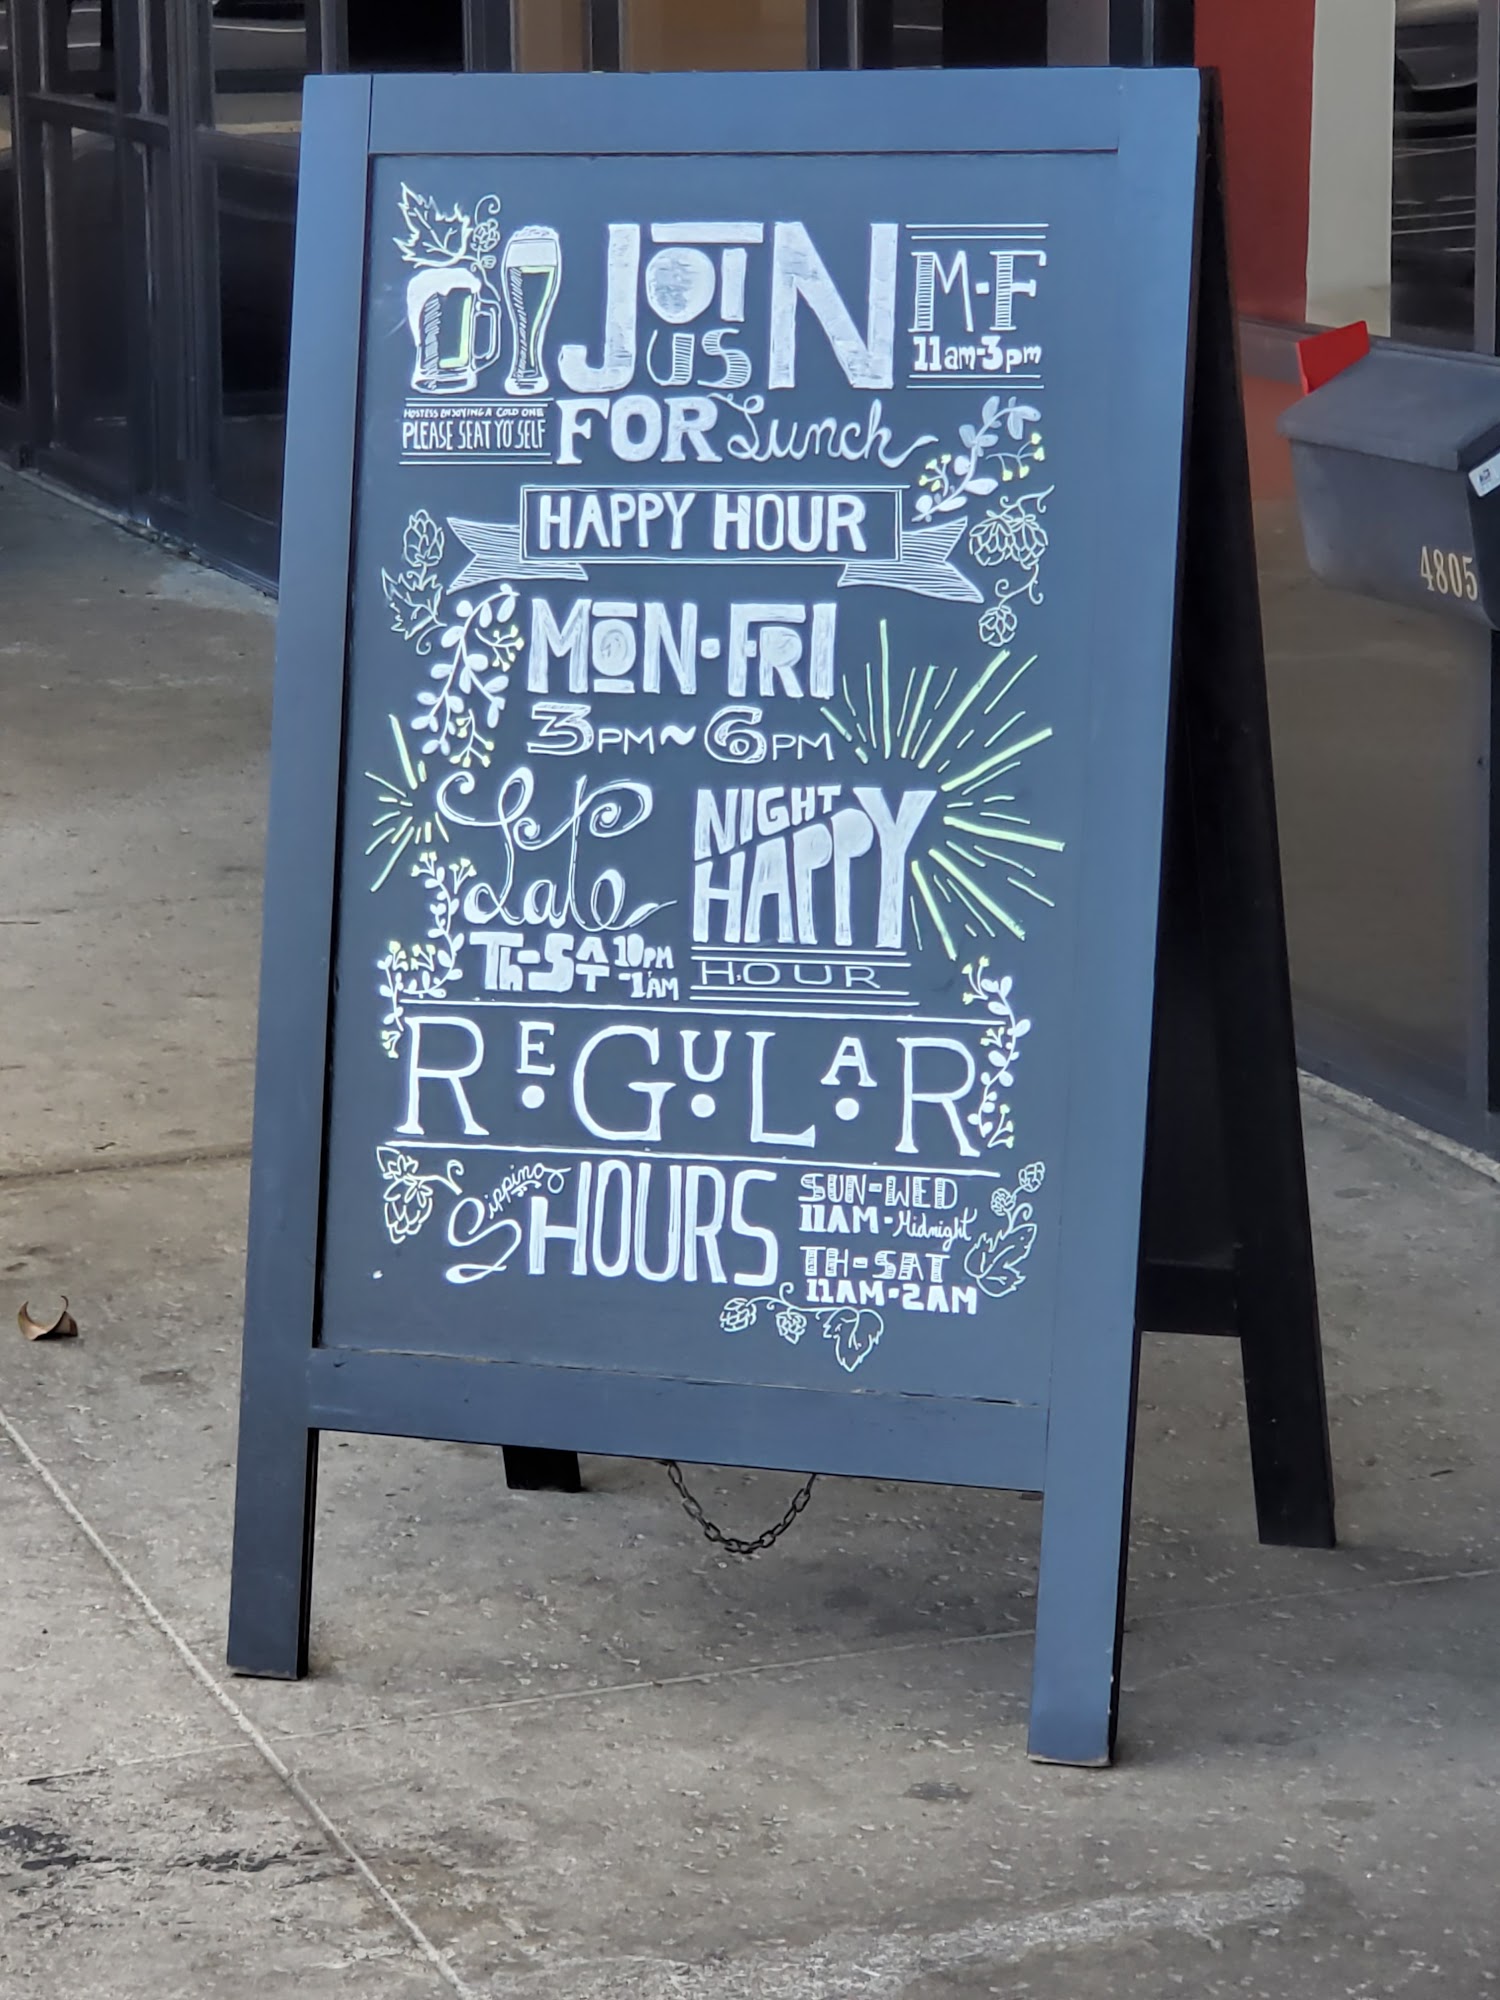 JOIN
US
M-F
11am-3pm
HOSTESS ENJOYING A COLD ONE
PLEASE SEAT YO' SELF
FOR Lunch
HAPPY HOUR
MON-FRI
3PM~6PM
Late
NIGHT
HAPPY
HOUR
Th-SAT 10PM
-1AM
REGULAR
Sipping
HOURS
SUN-WED
11AM-Midnight
TH-SAT
11AM-2AM
4805